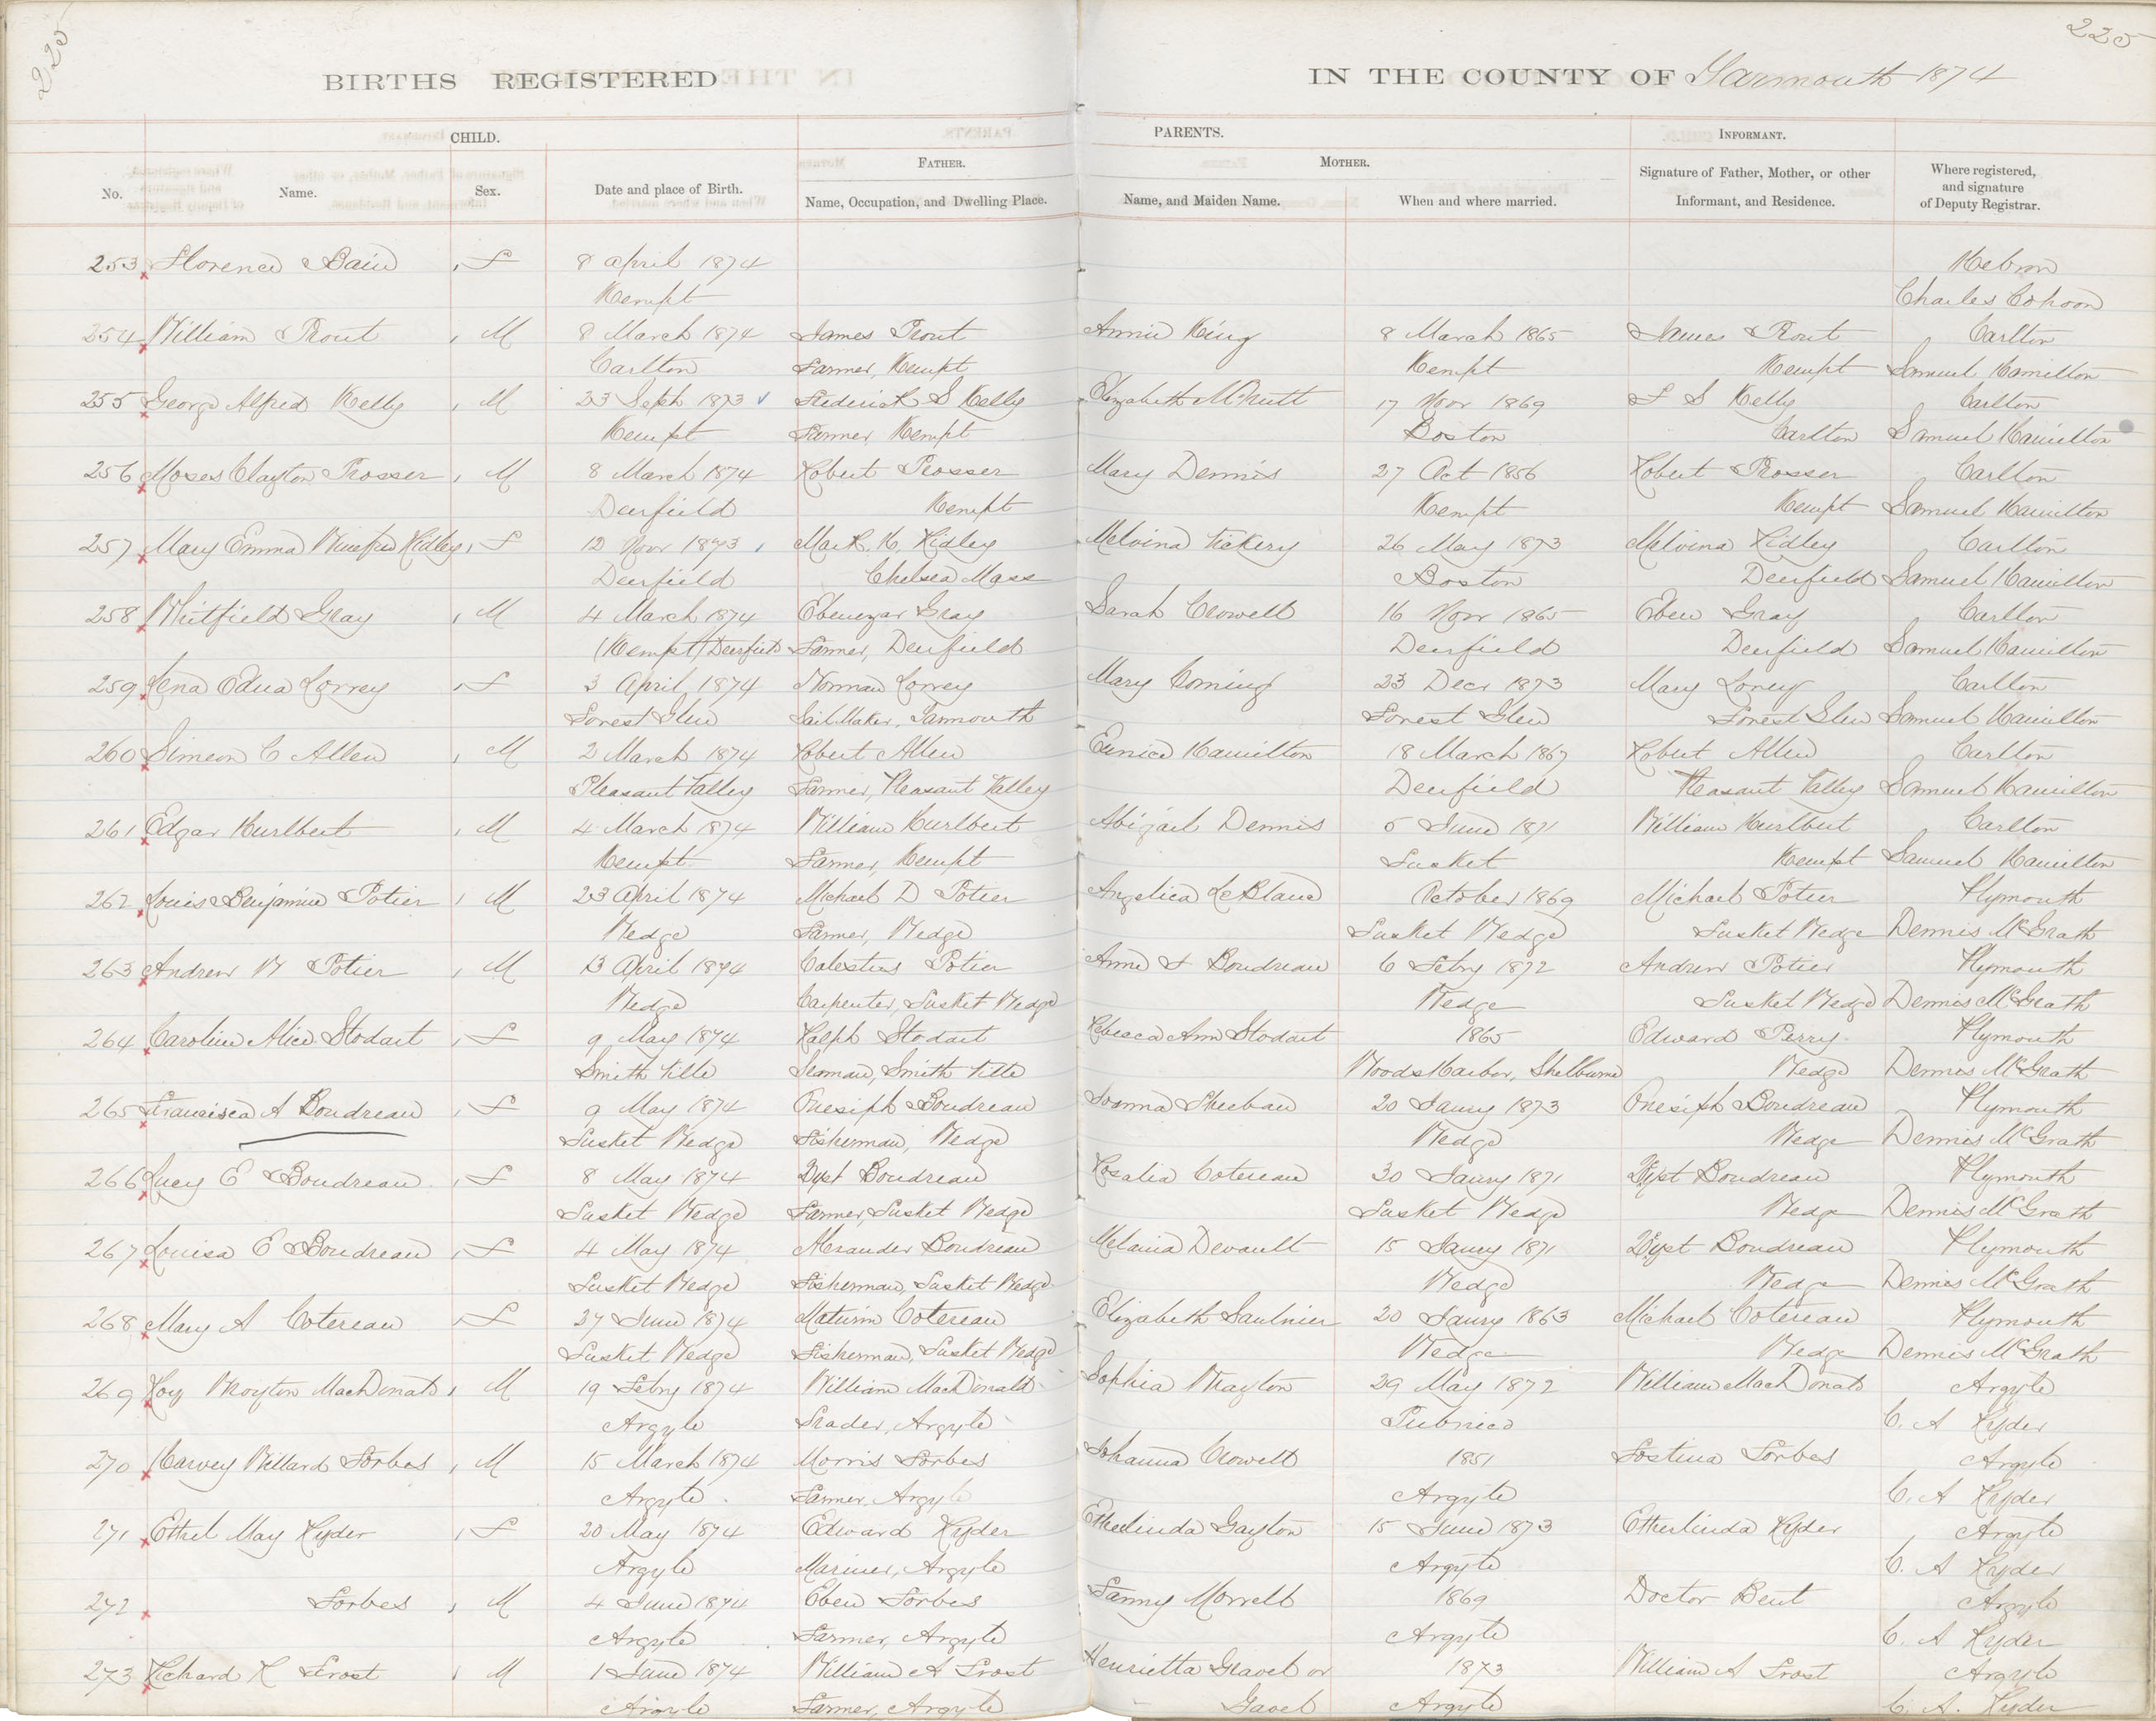 225
225
BIRTHS REGISTERED IN THE COUNTY OF Yarmouth 1874
CHILD. PARENTS. INFORMANT.
FATHER. MOTHER.
No. Name. Sex. Date and place of Birth. Name, Occupation, and Dwelling Place. Name, and Maiden Name. When and where married. Signature of Father, Mother, or other Informant, and Residence. Where registered, and signature of Deputy Registrar.
253 Florence Bain F 8 April 1874 Hebron
Kempt Charles Cohoon
254 William Trout M 8 March 1874 James Trout Annie King 8 March 1865 James Trout Carlton
Carlton Farmer, Kempt Kempt Kempt Samuel Hamilton
255 George Alfred Kelly M 23 Sept 1873 Frederick S Kelly Elizabeth McNutt 17 Novr 1869 F S Kelly Carlton
Kempt Farmer Kempt Boston Carlton Samuel Hamilton
256 Moses Clayton Prosser M 8 March 1874 Robert Prosser Mary Dennis 27 Oct 1856 Robert Prosser Carlton
Deerfield Kempt Kempt Kempt Samuel Hamilton
257 Mary Emma Ridley F 12 Novr 1873 Mark. H. Ridley Melvina Vickery 26 May 1873 Melvina Ridley Carlton
Deerfield Chelsea Mass Boston Deerfield Samuel Hamilton
258 Whitfield Gray M 4 March 1874 Ebenezar Gray Sarah Crowell 16 Novr 1865 Eben Gray Carlton
(Kempt) Deerfield Farmer, Deerfield Deerfield Deerfield Samuel Hamilton
259 Lena Edna Lorrey F 3 April 1874 Norman Lorrey Mary Coming 23 Decr 1873 Mary Lorrey Carlton
Forest Glen Sail Maker, Yarmouth Forest Glen Forest Glen Samuel Hamilton
260 Simeon C Allen M 2 March 1874 Robert Allen Eunice Hamilton 18 March 1867 Robert Allen Carlton
Pleasant Valley Farmer, Pleasant Valley Deerfield Pleasant Valley Samuel Hamilton
261 Edgar Hurlbert M 4 March 1874 William Hurlbert Abigail Dennis 5 June 1871 William Hurlbert Carlton
Kempt Farmer, Kempt Tusket Kempt Samuel Hamilton
262 Louis Benjamin Potier M 23 April 1874 Michael D Potier Angelica LeBlanc October 1869 Michael Potier Plymouth
Wedge Farmer, Wedge Tusket Wedge Tusket Wedge Dennis McGrath
263 Andrew W Potier M 13 April 1874 Calestins Potier Anne F Boudreau 6 Febry 1872 Andrew Potier Plymouth
Wedge Carpenter, Tusket Wedge Wedge Tusket Wedge Dennis McGrath
264 Caroline Alice Stodart F 9 May 1874 Ralph Stodart Rebecca Ann Stodart 1865 Edward Perry Plymouth
Smith Ville Seaman, Smith Ville Woods Harbor, Shelburne Wedge Dennis McGrath
265 Francisca A Boudreau F 9 May 1874 Onesiph Boudreau Joanna Sheehan 20 Janry 1873 Onesiph Boudreau Plymouth
Tusket Wedge Fisherman, Wedge Wedge Wedge Dennis McGrath
266 Lucy E Boudreau F 8 May 1874 Boudreau Rosalia Cotereau 30 Janry 1871 Boudreau Plymouth
Tusket Wedge Farmer, Tusket Wedge Tusket Wedge Wedge Dennis McGrath
267 Louisa E Boudreau F 4 May 1874 Alexander Boudreau Melania Devault 15 Janry 1871 Boudreau Plymouth
Tusket Wedge Fisherman, Tusket Wedge Wedge Wedge Dennis McGrath
268 Mary A Cotereau F 27 June 1874 Maturin Cotereau Elizabeth Saulnier 20 Janry 1863 Michael Cotereau Plymouth
Tusket Wedge Fisherman, Tusket Wedge Wedge Wedge Dennis McGrath
269 Roy Wrayton MacDonald M 19 Febry 1874 William MacDonald Sophia Wrayton 29 May 1872 William MacDonald Argyle
Argyle Trader, Argyle Pubnico C. A Ryder
270 Harvey Willard Forbes M 15 March 1874 Morris Forbes Johanna Crowell 1851 Fostina Forbes Argyle
Argyle Farmer, Argyle Argyle C. A Ryder
271 Ethel May Ryder F 20 May 1874 Edward Ryder Etherlinda Gayton 15 June 1873 Etherlinda Ryder Argyle
Argyle Mariner, Argyle Argyle C. A Ryder
272 Forbes M 4 June 1874 Eben Forbes Fanny Morrell 1869 Doctor Bent Argyle
Argyle Farmer, Argyle Argyle C. A Ryder
273 Richard K Frost M 1 June 1874 William A Frost Henrietta Gravel or 1873 William A Frost Argyle
Argyle Farmer, Argyle Gavel Argyle C. A. Ryder